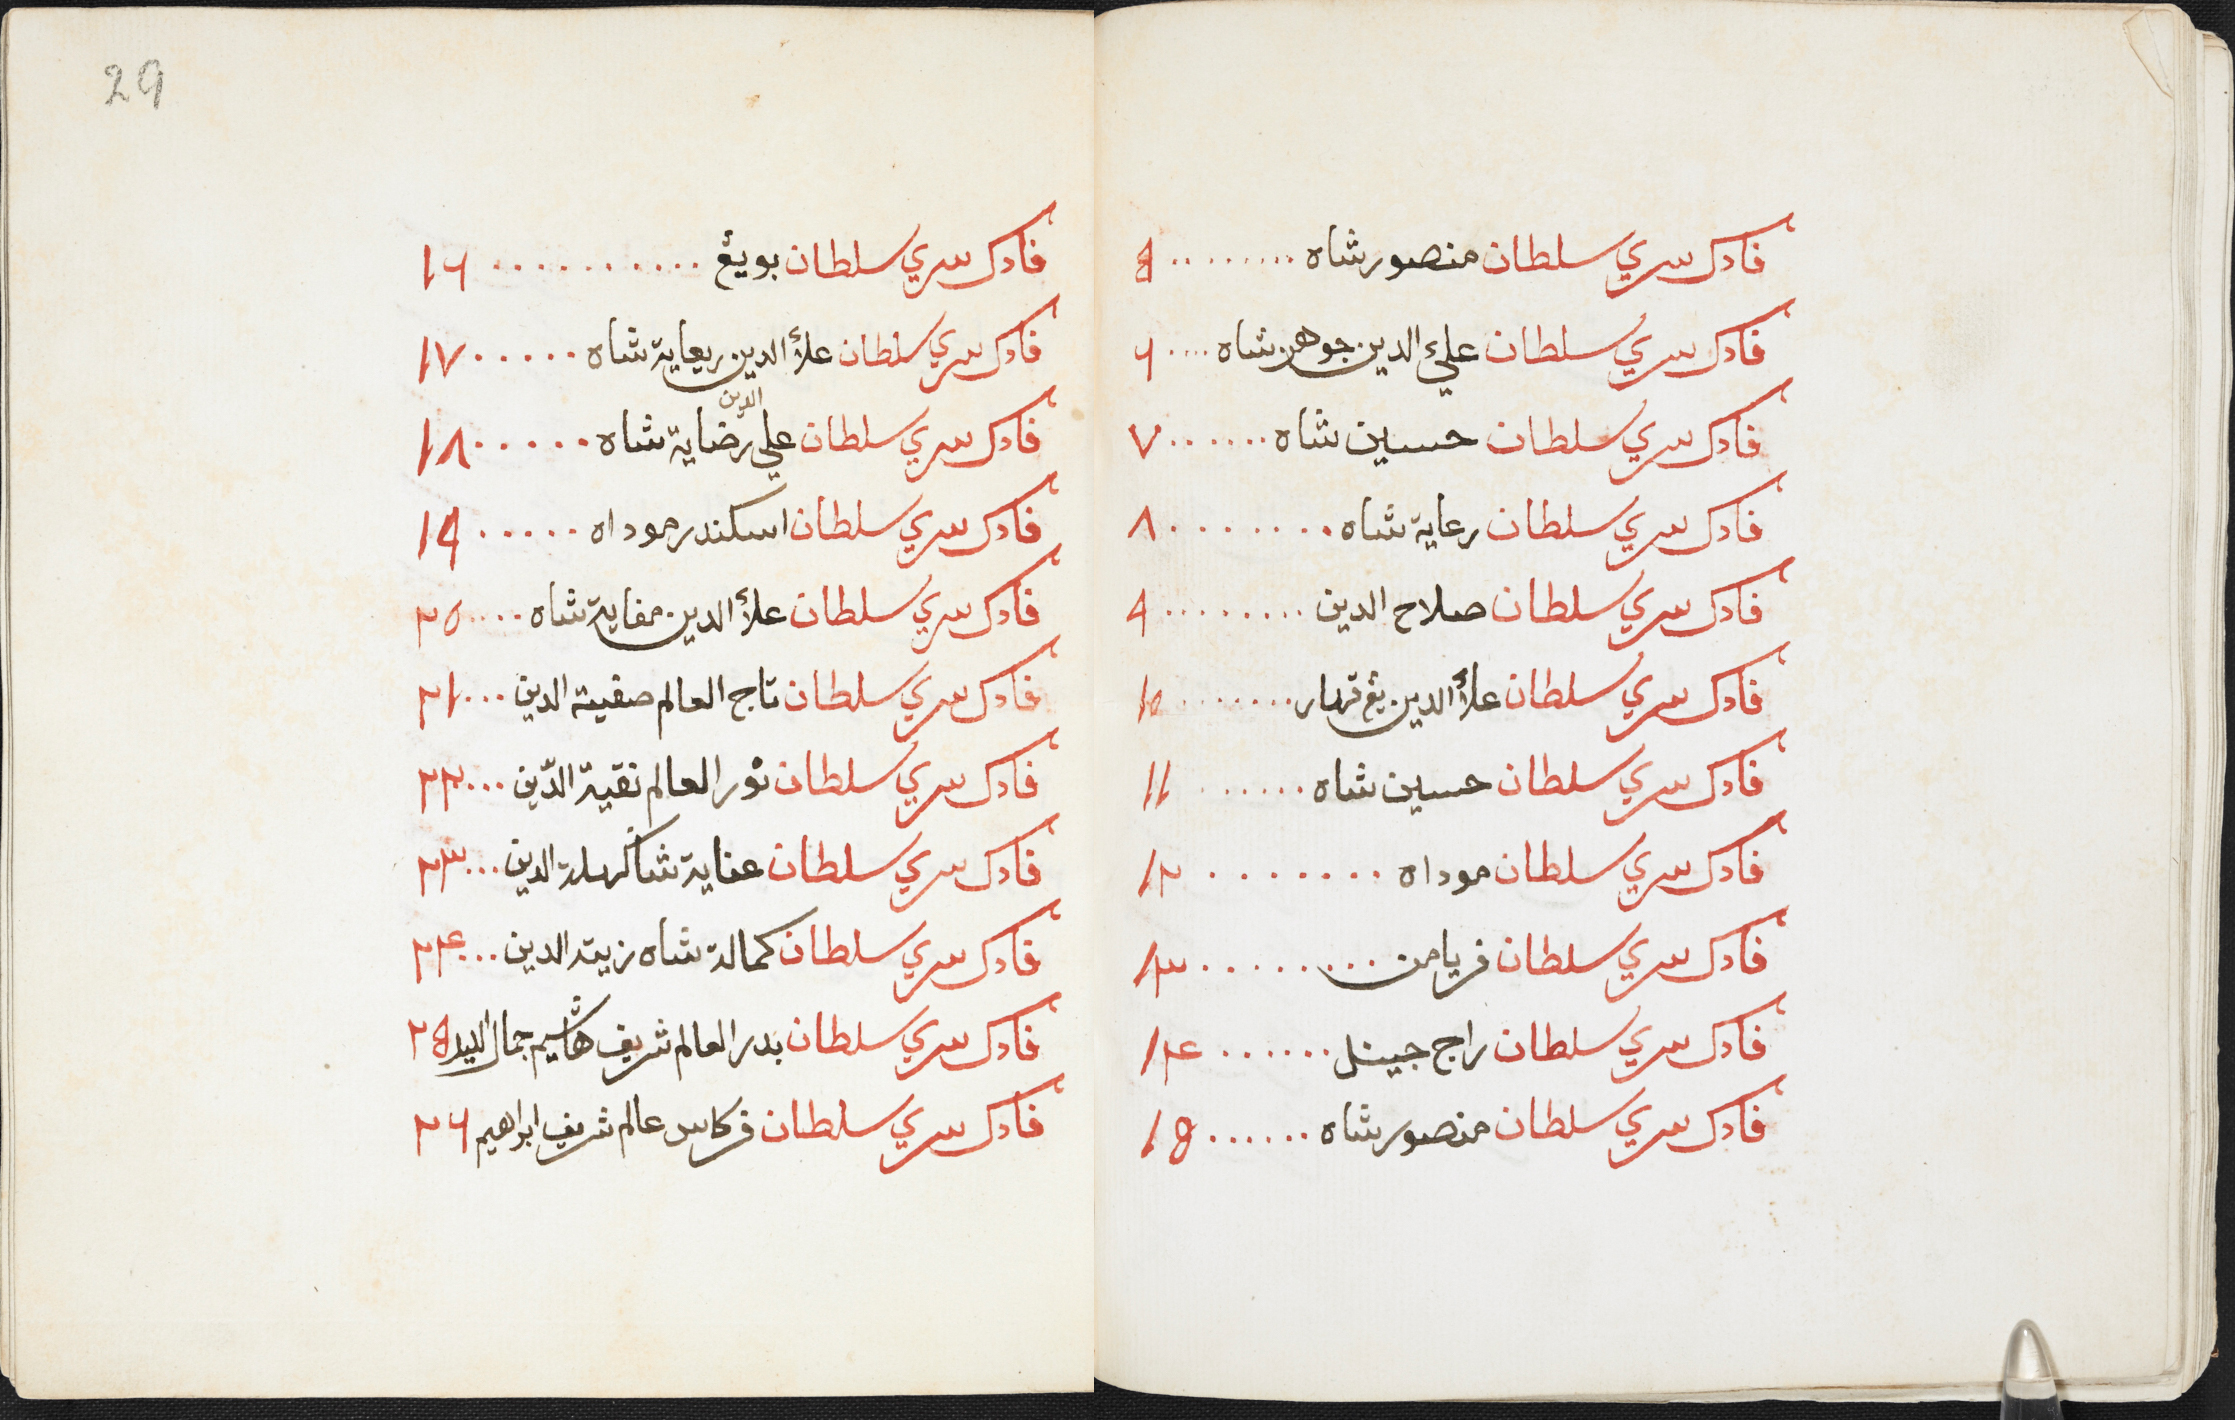 فادک سري سلطان منصور شاه ......... ٥
فادک سري سلطان علي الدين جوهن شاه .... ٦
فادک سري سلطان حسين شاه ....... ٧
فادک سري سلطان رعاية شاه ........ ٨
فادک سري سلطان صلاح الدين ......... ٩
فادک سري سلطان علأ الدين يڠ قهار ........ ١٠
فادک سري سلطان حسين شاه ....... ١١
فادک سري سلطان موداه ........ ١٢
فادک سري سلطان فريامن ......... ١٣
فادک سري سلطان راج جينل ...... ١٤
فادک سري سلطان منصور شاه ...... ١٥
29
فادک سري سلطان بويڠ ........... ١٦
فادک سري سلطان علأ الدين ريعاية شاه ..... ١٧
فادک سري سلطان علي الدين رضاية شاه ...... ١٨
فادک سري سلطان اسكندر موداه ..... ١٩
فادک سري سلطان علأ الدين مغاية شاه .... ٢٠
فادک سري سلطان تاج العالم صفية الدين ... ٢١
فادک سري سلطان نور العالم نقية الدّين ... ٢٢
فادک سري سلطان عناية شاه الدين ... ٢٣
فادک سري سلطان كمالة شاه زينة الدين ... ٢٤
فادک سري سلطان بدر العالم شريف هاشيم جمال ٢٥
فادک سري سلطان فركاس عالم شريف ابراهيم ٢٦